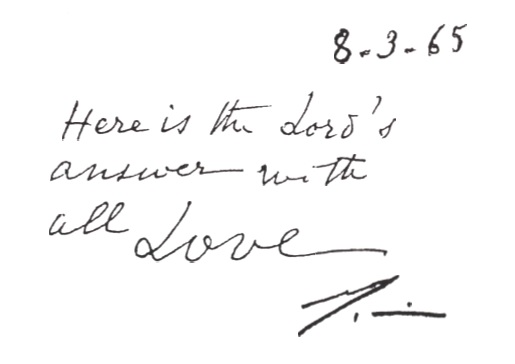 8-3-65
Here is the Lord's
answer with
all Love